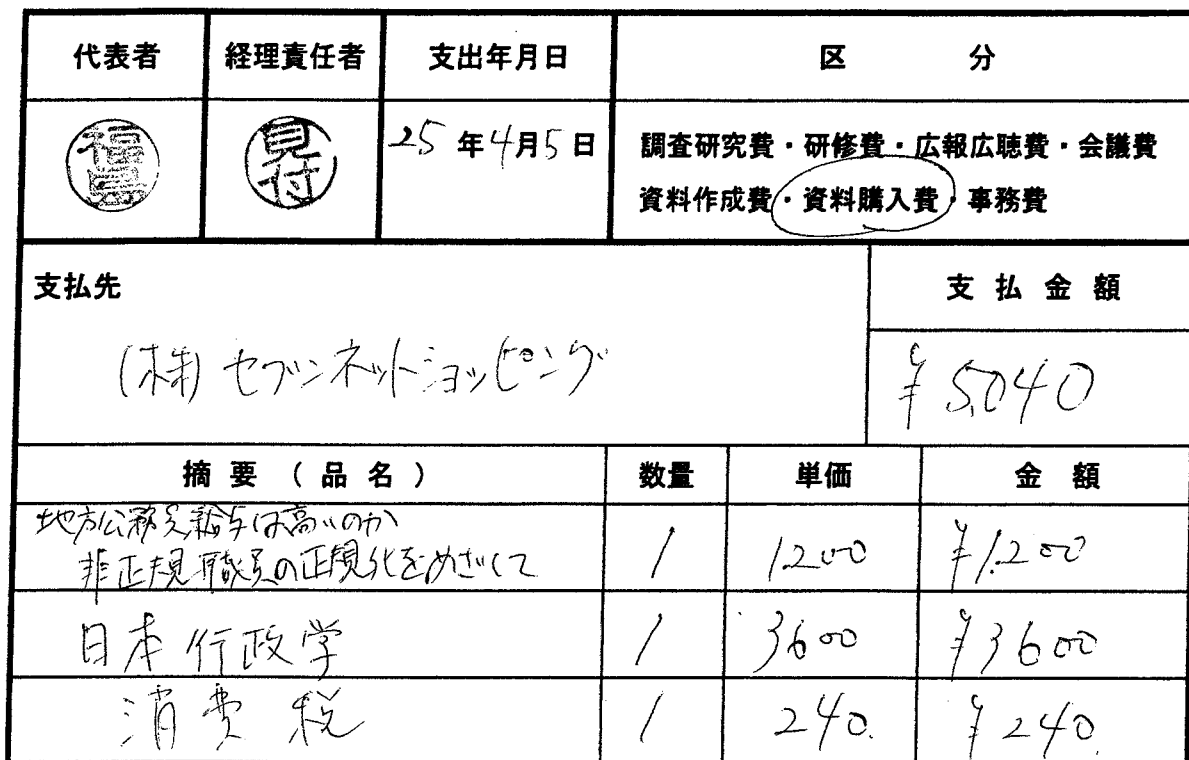 代表者 経理責任者 支出年月日 区 分
福島 見付 25年4月5日 調査研究費・研修費・広報広聴費・会議費
資料作成費・資料購入費・事務費
支払先 支払金額
(株)セブンネットショッピング ¥5,040
摘要(品名) 数量 単価 金額
地方公務員給与は高いのか
非正規職員の正規化をめざして 1 1200 ¥1,200
日本行政学 1 3600 ¥3600
消費税 1 240. ¥240.